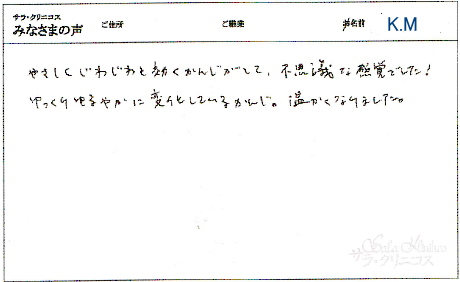 サラ・クリニコス
みなさまの声
ご住所
ご職業
お名前
K.M
やさしくじわじわと効くかんじがして、不思議な感覚でした！
ゆっくりゆるやかに変化しているかんじ。温かくなりました。
Sala Klinikos
サラ・クリニコス